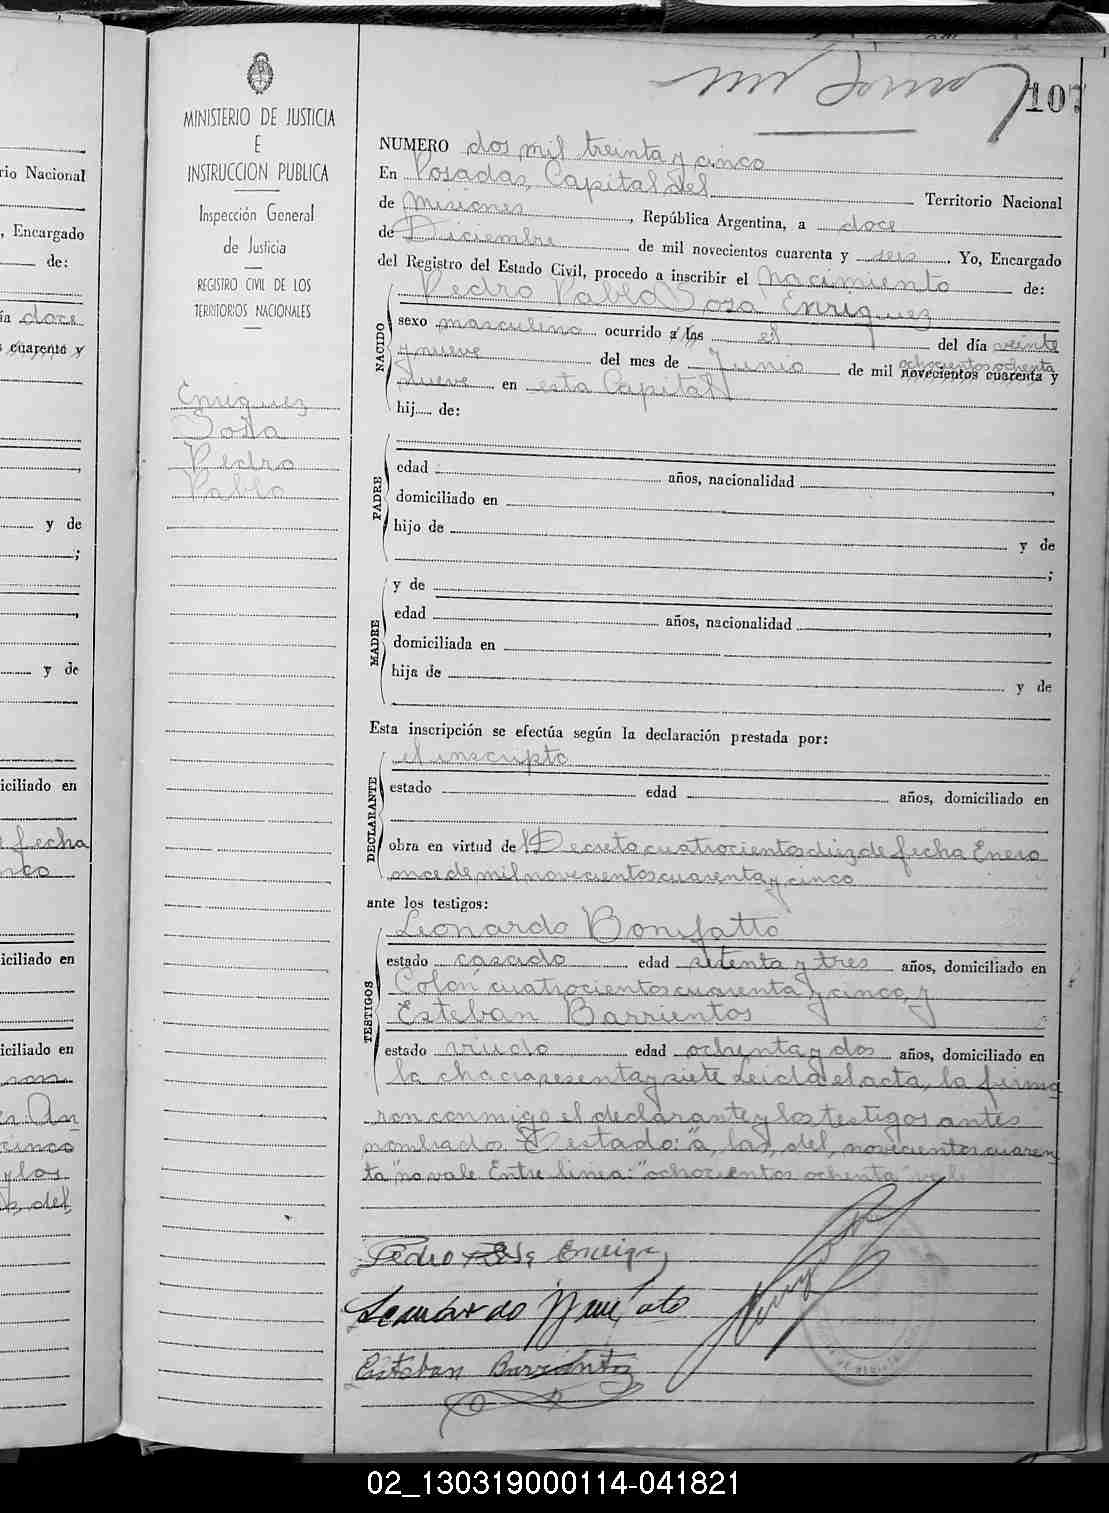 107
MINISTERIO DE JUSTICIA
E
INSTRUCCION PUBLICA
Inspección General
de Justicia
REGISTRO CIVIL DE LOS
TERRITORIOS NACIONALES
Enriquez
Sosa
Pedro
Pablo
NUMERO dos mil treinta y cinco
En Posadas, Capital del Territorio Nacional
de Misiones, República Argentina, a doce
de Diciembre de mil novecientos cuarenta y seis. Yo, Encargado
del Registro del Estado Civil, procedo a inscribir el nacimiento de:
NACIDO
Pedro Pablo Sosa Enriquez
sexo masculino ocurrido a las el del día veinte
y nueve del mes de Junio de mil novecientos cuarenta y
ochocientos ochenta
nueve en esta Capital
hij..... de:
PADRE
edad años, nacionalidad ,
domiciliado en
hijo de y de
;
MADRE
y de
edad años, nacionalidad ,
domiciliada en
hija de y de
Esta inscripción se efectúa según la declaración prestada por:
DECLARANTE
el inscripto
estado edad años, domiciliado en
obra en virtud del Decreto cuatrocientos diez de fecha Enero
once de mil novecientos cuarenta y cinco
ante los testigos:
TESTIGOS
Leonardo Bonifatto
estado casado edad setenta y tres años, domiciliado en
Colón cuatrocientos cuarenta y cinco, y
Esteban Barrientos
estado viudo edad ochenta y dos años, domiciliado en
la chacra sesenta y siete Leida el acta, la firma
ron conmigo el declarante y los testigos antes
nombrados. Testado: "a, las, del, novecientos cuaren
ta" no vale. Entre linea: "ochocientos ochenta" vale
Pedro Enriquez
Esteban Barrientos
rio Nacional
, Encargado
de:
ía doce
s cuarenta y
y de
;
,
y de
iciliado en
e fecha
nco
iciliado en
iciliado en
ron
cinco
y los
del
02_130319000114-041821